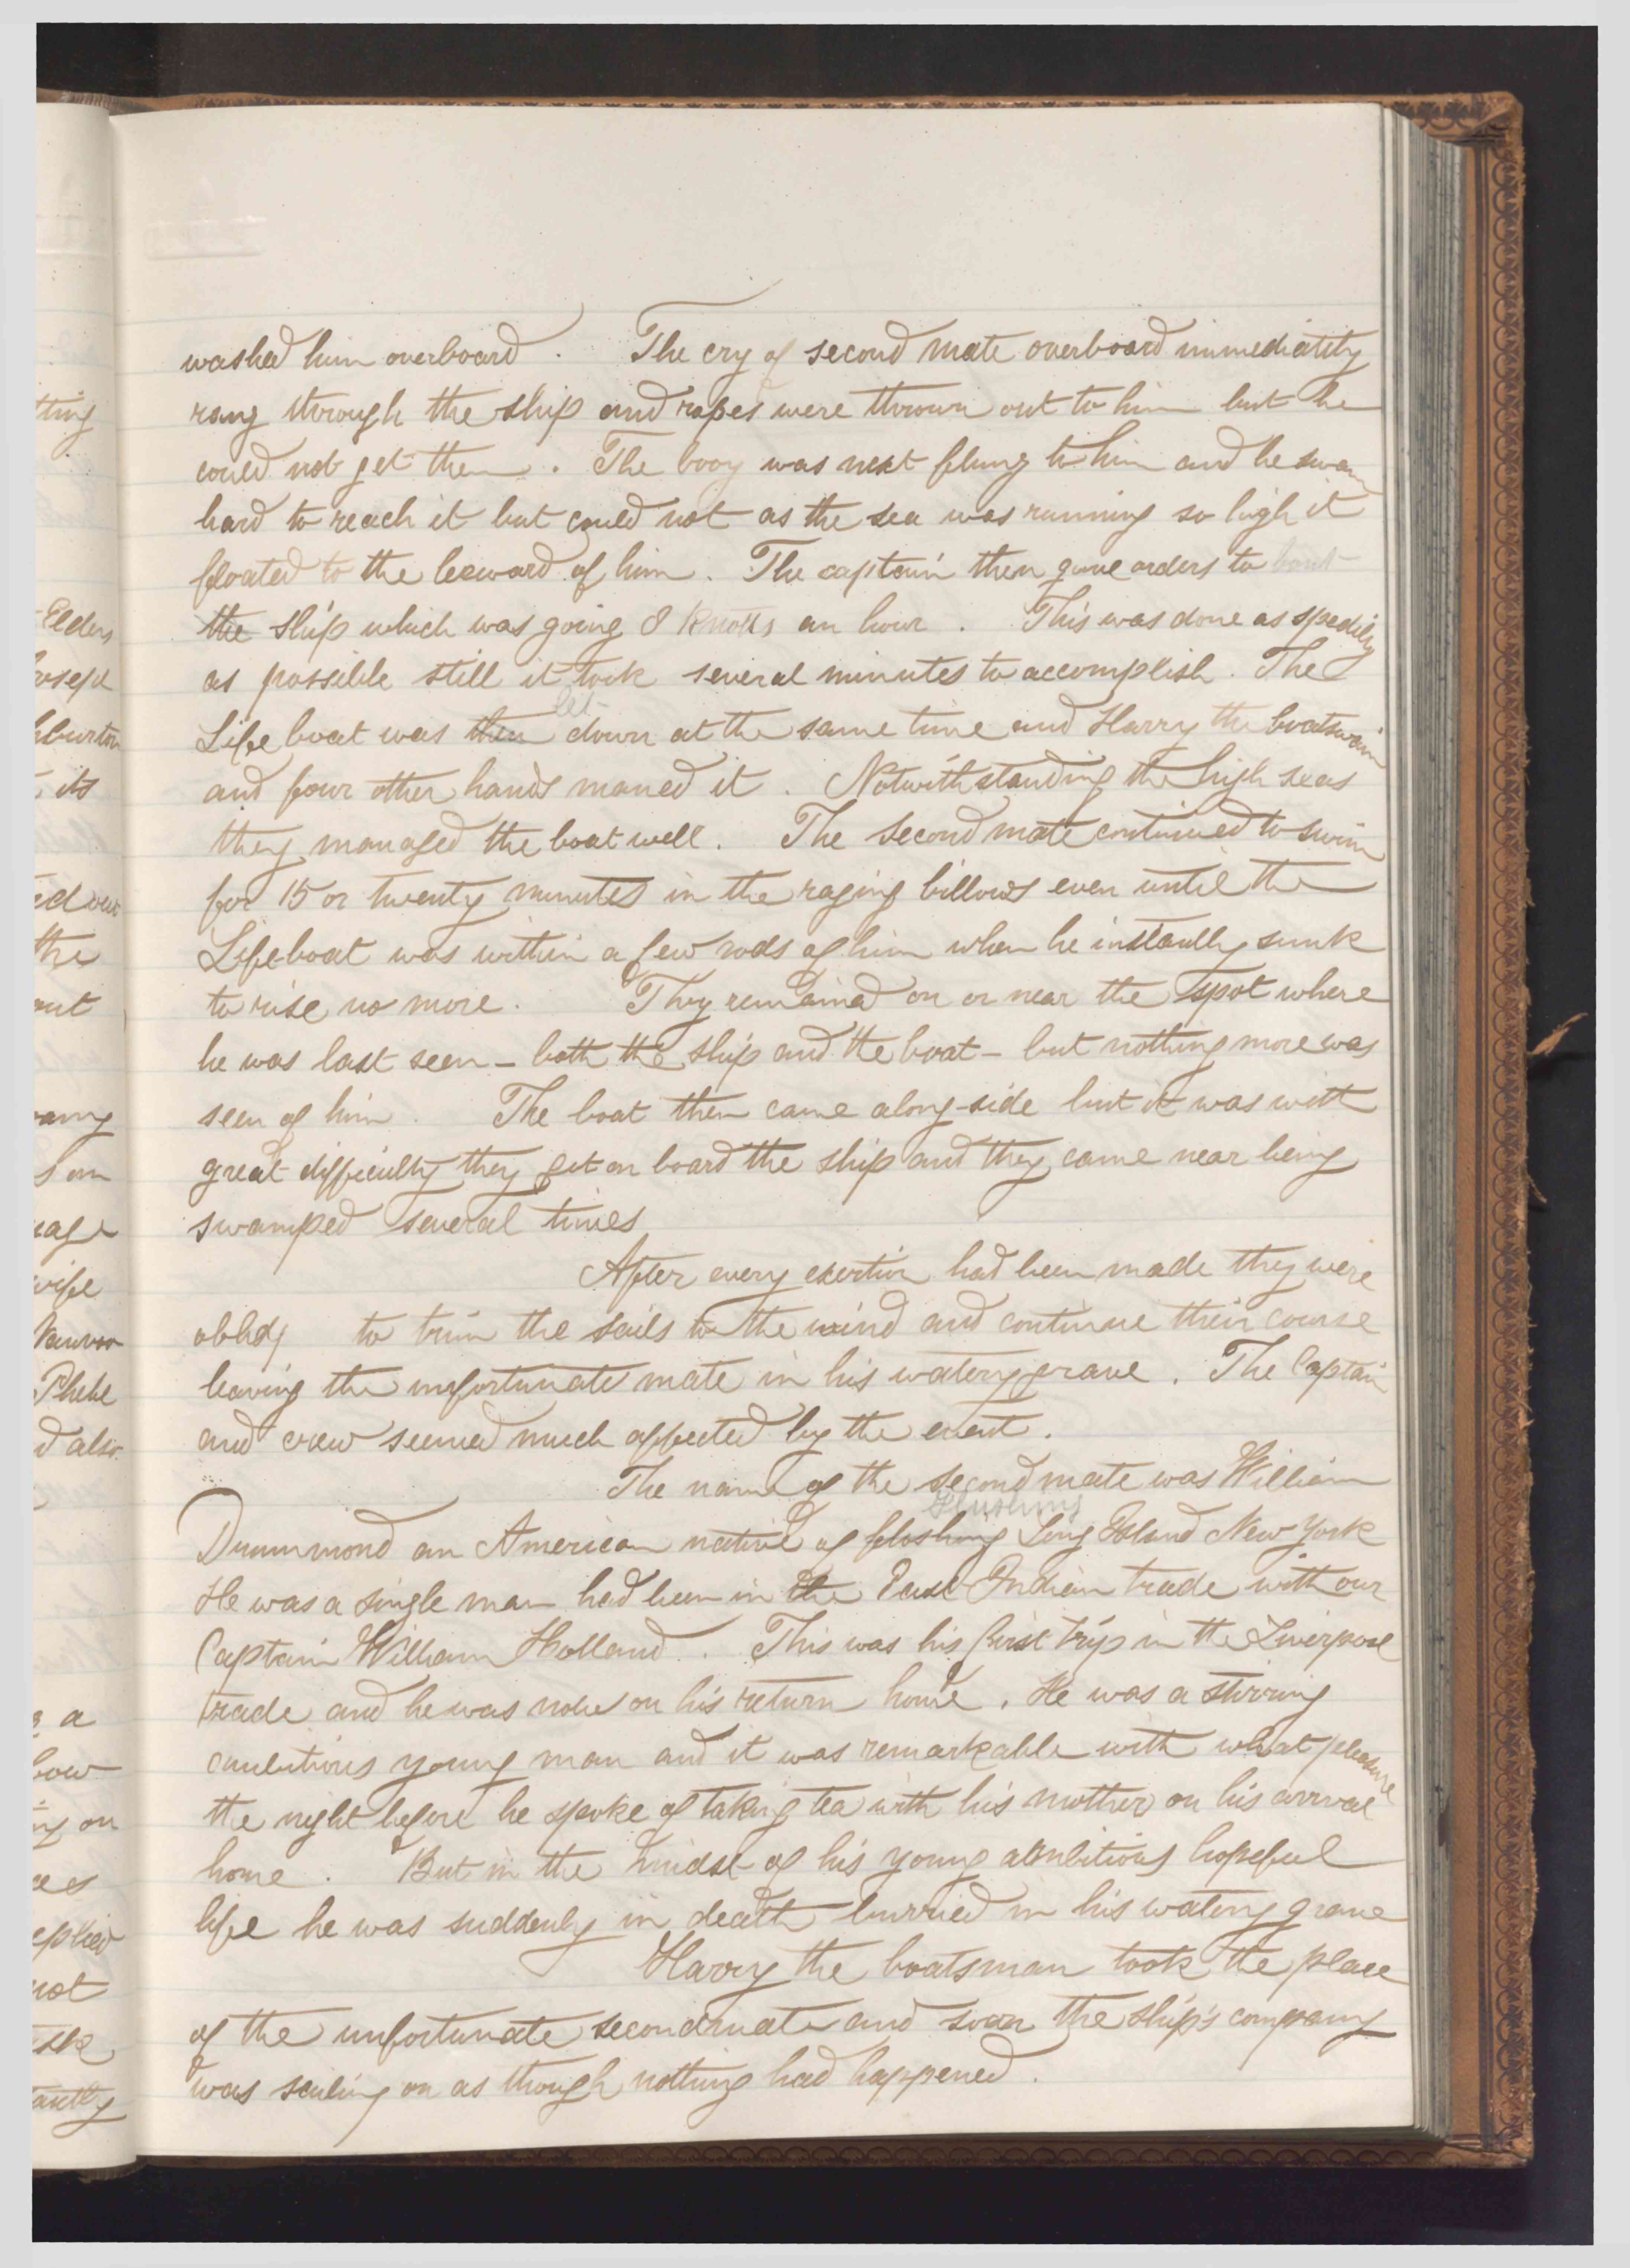 washed him overboard. The cry of second mate overboard immediately
rang through the ship and ropes were thrown out to him but he
could not get them. The booy was next flung to him and he swam
hard to reach it but could not as the sea was running so high it
floated to the leeward of him. The captain then gave orders to bout
the ship which was going 8 knotts an hour. This was done as spedily
as possible still it took several minutes to accomplish. The
let
Life boat was then down at the same time and Harry the boatswain
and four other hands maned it. Notwithstanding the high seas
they managed the boat well. The second mate continued to swim
for 15 or twenty minutes in the raging billows even until the
Lifeboat was within a few rods of him when he instantly sunk
to rise no more. They remained on or near the spot where
he was last seen - both the ship and the boat - but nothing more was
seen of him. The boat then came along-side but it was with
great difficulty they got on board the ship and they came near being
swamped several times
After every exertion had been made they were
to trim the sails to the wind and continue their course
leaving the unfortunate mate in his watery grave. The Captain
and crew seemed much affected by the event.
The name of the second mate was William
Flushing
Drummond an American native of floshing Long Island New York
He was a single man had been in the East Indian trade with our
Captain William Holland. This was his first trip in the Liverpool
trade and he was now on his return home. He was a stirring
ambitious young man and it was remarkable with what pleasure
the night before he spoke of taking tea with his mother on his arrival
home. But in the midst of his young ambitious hopeful
life he was suddenly in death burried in his watery grave
Harry the boatsman took the place
of the unfortunate second mate and soon the ship's company
was sailing on as though nothing had happened.